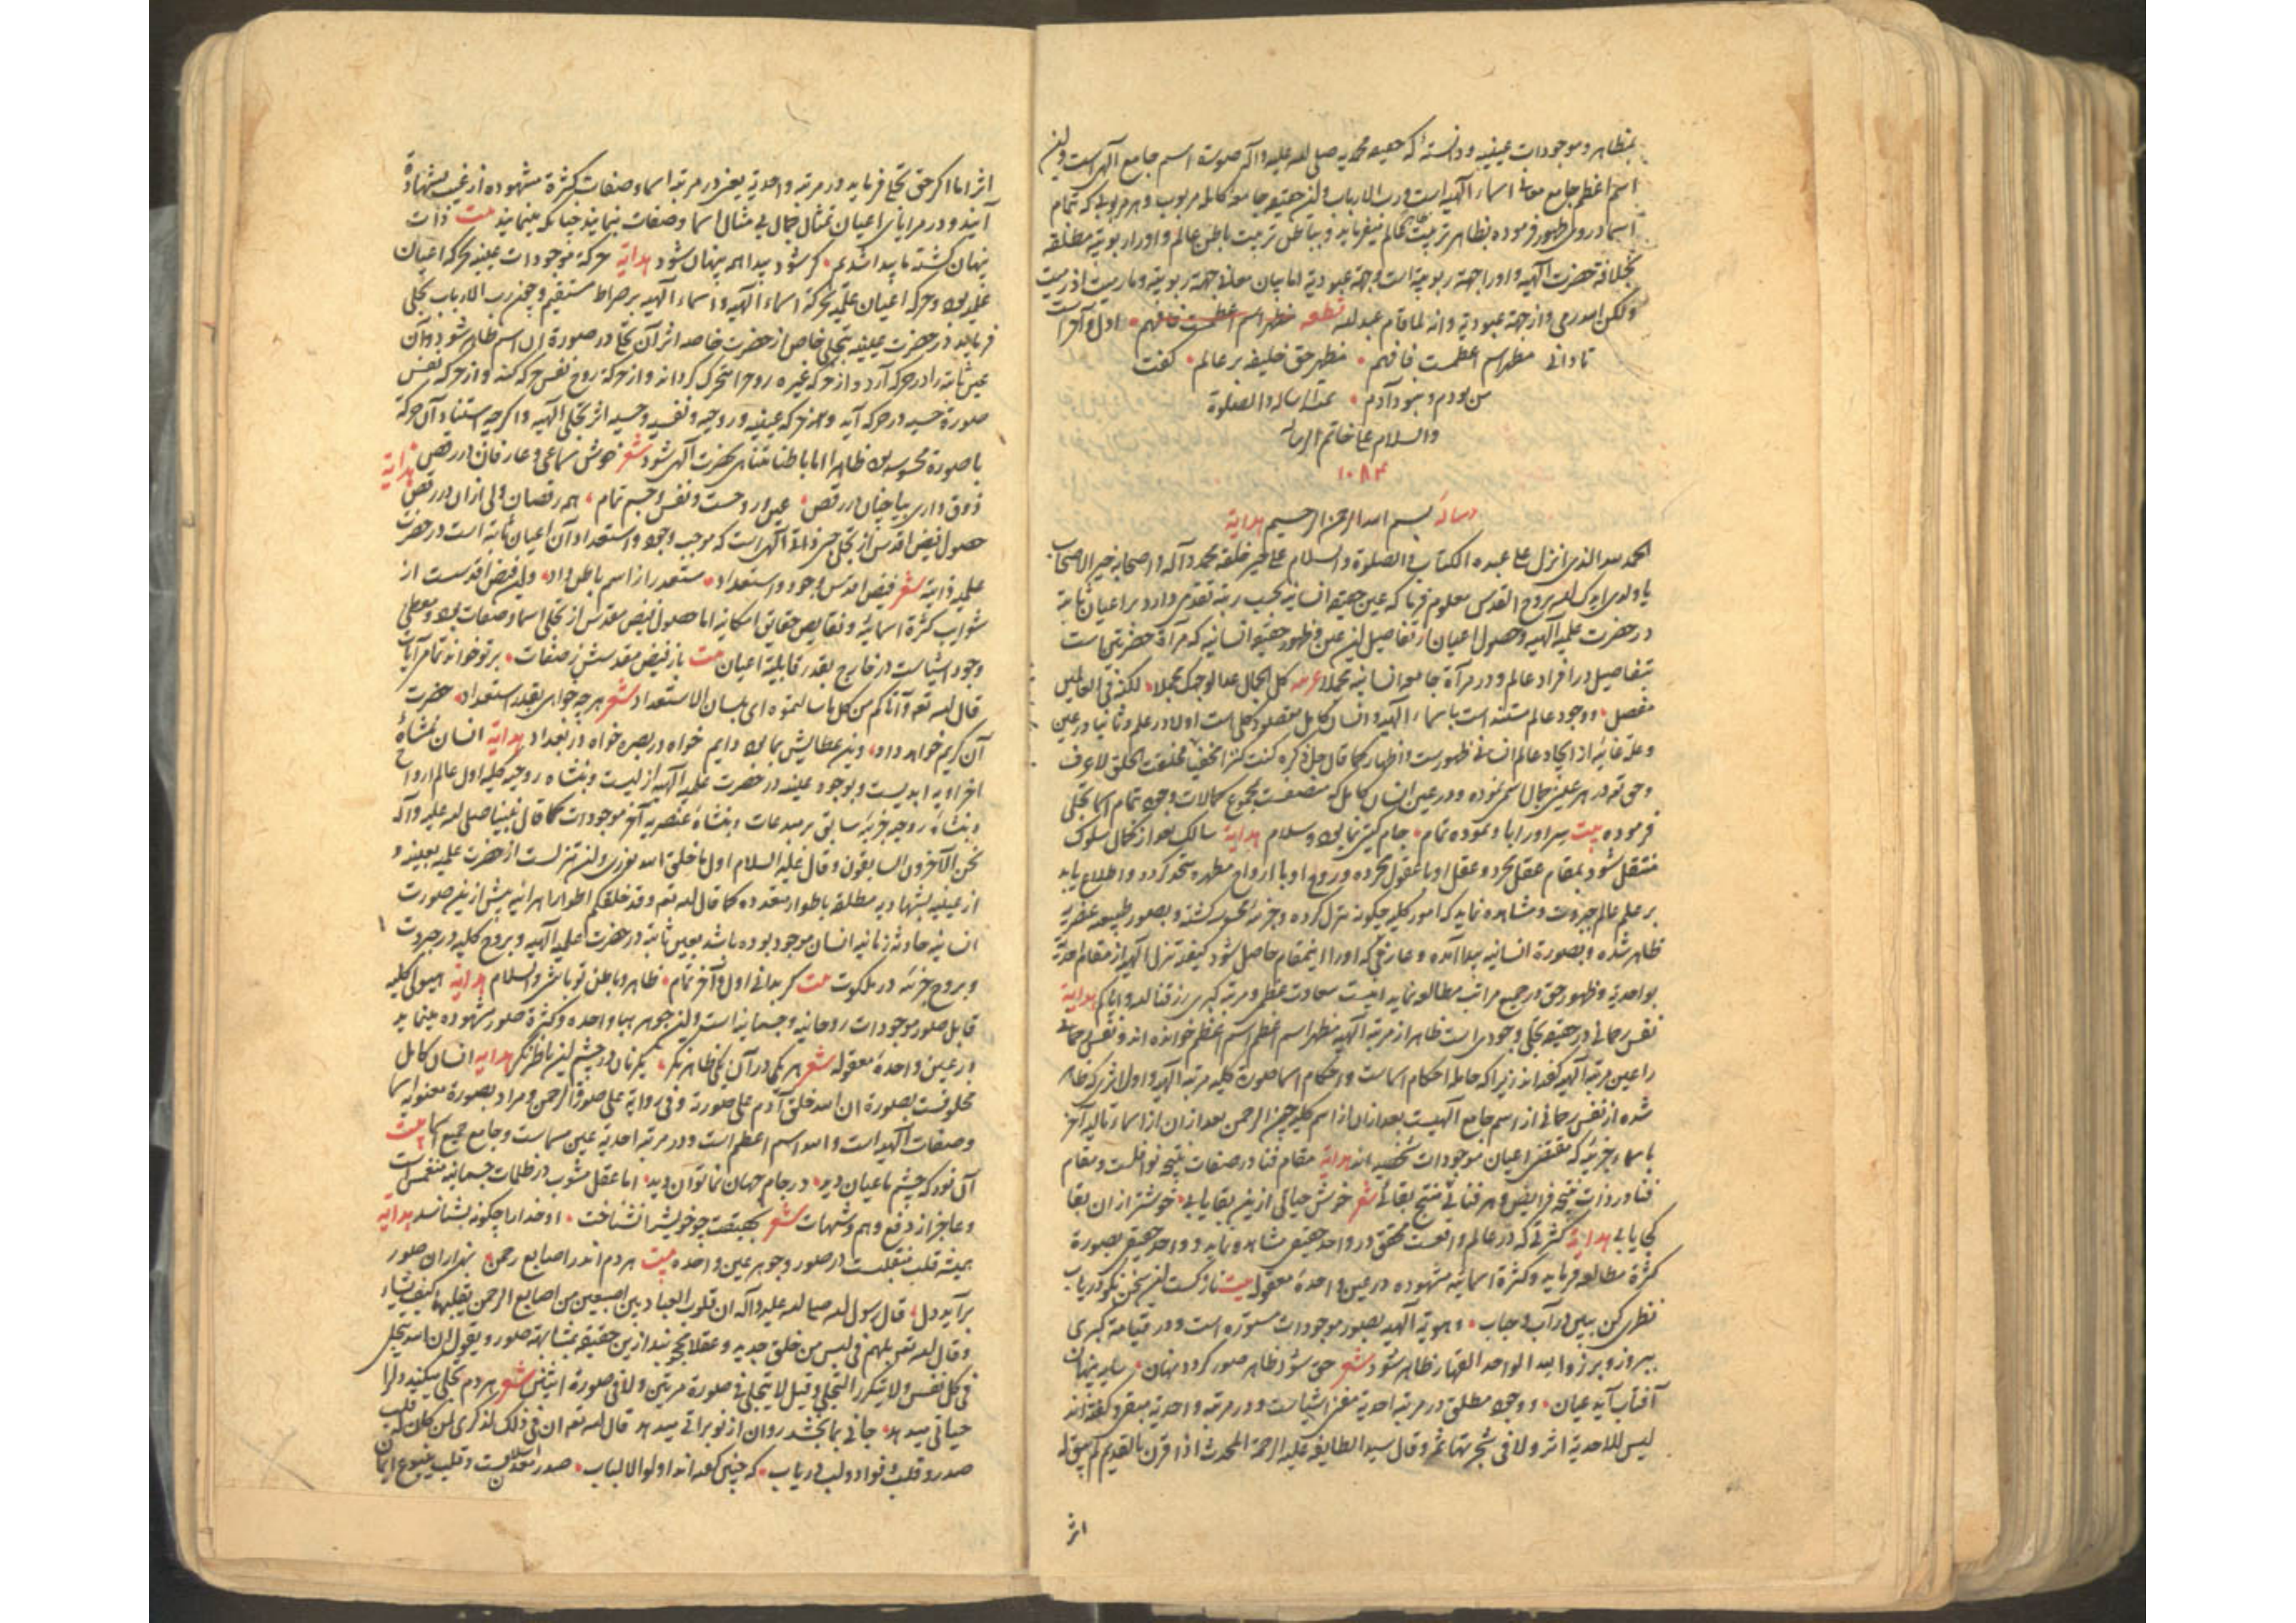 بمظاهر و موجودات عینیه و دانسته که حقیقه محمدیه صلی الله علیه و آله صورت اسم جامع الهی است و این
اسم اعظم جامع معانی اسماء الهیه است و رب الارباب و این حقیقه جامعه کامله مربوب و هر مربوبی که تمام
اسما در وی ظهور فرموده بظاهر تربیت عالم میفرماید و بباطن تربیت باطن عالم و او را ربوبیة مطلقه
بخلافة حضرت الهیه و او را جهة ربوبیة است و جهة عبودیة اما بیان جهة ربوبیة و ما رمیت اذ رمیت
ولکن الله رمی و از جهة عبودیة و انه لما قام عبد الله قطعه مظهر اسم اعظمست فافهم اول و آخر است
تا دانی مظهر اسم اعظمست فافهم مظهر حق خلیفه بر عالم گفت
من بودم و نبود آدم تمت الرساله والصلوة
والسلام علی خاتم الرساله
١٠٨٤
رساله بسم الله الرحمن الرحیم هدایة
الحمد لله الذی انزل علی عبده الکتاب والصلوة والسلام علی خیر خلقه محمد و آله و اصحابه خیر الاصحاب
یا ولدی ایدک الله بروح القدس معلوم فرما که عین حقیقه انسانیه بحسب رتبه تقدمی دارد بر اعیان ثابته
در حضرت علمیه الهیه و حصول اعیان از تفاصیل این عین و ظهور حقیقه انسانیه که مرآة حضرتین است
بتفاصیل در افراد عالم و در مرآة جامعه انسانیه مجملا ع کل الجمال غدا لوجهک مجملا لکنه فی العالمین
مفصل و وجود عالم مستند است باسماء الهیه و انسان کامل مقصود کلی است اولا در علم و ثانیا در عین
و علة غائیه از ایجاد عالم انسانی ظهورست و اظهار کما قال جل ذکره کنت کنزا مخفیا فخلقت الخلق لاعرف
و حق تعه در هر عینی جمال اسمی نموده و در عین انسان کامل که متصفست بمجموع کمالات وجود تمام اسما تجلی
فرموده بیت سر او را با و نموده تمام جام گیتی نما بود و سلام هدایة سالک بعد از کمال سلوک
منتقل شود بمقام عقل مجرد و عقل او با عقول مجرده و روح او با ارواح مطهره متحد گردد و اطلاع یابد
بر علم عالم جبروت و مشاهده نماید که امور کلیه چگونه تنزل کرده و جزئیه محسوسه گشته و بصور طبیعیه عنصریه
ظاهر شده و بصورة انسانیه پیدا آمده و عارفی که او را اینمقام حاصل شود کیفیة تنزل الهیه از مقام احدیة
بواحدیة و ظهور حق در جمیع مراتب مطالعه نماید اینست سعادت عظمی و مرتبه کبری رزقنا الله و ایاکم هدایة
نفس رحمانی در حقیقه تجلی وجودی است ظاهر از مرتبه الهیه مظهر اسم اعظم اسم اعظم خوانده اند و نفس رحمانی
را عین مرتبه الهیه گفته اند زیرا که حامله احکام اسماست و احکام اسما صورة کلیه مرتبه الهیه و اول اثری که ظاهر
شده از نفس رحمانی از اسم جامع الهیست بعد از ان از اسم کلیه چون الرحمن بعد از ان از اسماء تالیه آخر
باسماء جزئیه که مقتضی اعیان موجودات شخصیه اند هدایة مقام فنا در صفات نتیجه نوافلست و مقام
فنا در ذات نتیجه فرایض و هر فنائی منتج بقائی شعر خوش حیاتی ازین بقا یابی خوشتر از ان بقا
کجا یابی هدایة کثرتی که در عالم واقعست محقق در واحد حقیقی مشاهده نماید و واحد حقیقی بصورة
کثرة مطالعه فرماید و کثرة اسمائیه مشهوده در عین واحدة معقوله بیت نازکست این سخن نکو دریاب
نظری کن ببین در آب و حباب و هویة الهیه بصور موجودات مستوره است و در قیامة کبری
ببروز و برزوا لله الواحد القهار ظاهر شود شعر حق شود ظاهر صور گردد نهان سایه پنهان
آفتاب آید عیان و وجود مطلق در مرتبه احدیة مغنی اشیاست و در مرتبه واحدیة مبقی و گفته اند
لیس للاحدیة اثر ولا فی شجرتها ثمر و قال سید الطایفه علیه الرحمة المحدث اذا قرن بالقدیم لم یبق له
اثر
اثر اما اگر حق تجلی فرماید در مرتبه واحدیة یعنی در مرتبه اسما و صفات کثرة مشهوده از غیب بشهادة
آیند و در مرایای اعیان تمثال جمال بی مثال اسما و صفات بنمایند چنانکه مینمایند بیت ذات
پنهان گشته ما پیدا شدیم گر شود پیدا همه پنهان شود هدایة حرکة موجودات عینیه بحرکه اعیان
علمیه بود و حرکه اعیان علمیه بحرکة اسماء الهیه و اسماء الهیه بر صراط مستقیم و چون رب الارباب تجلی
فرماید در حضرت عینیه بتجلی خاص از حضرت خاصه اثر آن تجلی در صورة آن اسم ظاهر شود و آن
عین ثابته را در حرکه آرد و از حرکه عینیه روح را متحرک گرداند و از حرکة روح نفس حرکه کند و از حرکه نفس
صورة حسیه در حرکه آید و هر حرکه عینیه و روحیه و نفسیه و حسیه اثر تجلی الهیه و اگرچه استناد آن حرکة
با صورة محسوسه بود ظاهرا اما باطنا متناهی بحضرت الهی شود شعر خوش سماعی و عارفان در رقص هدایة
ذوق داری بیا چنان در رقص عین و روحست و نفس و جسم تمام همه رقصان ولی ازان در رقص
حصول فیض اقدس از تجلی حبی ذاتی الهی است که موجب وجود و استعداد آن اعیان ثابته است در حضرت
علمیه ذاتیه شعر فیض اقدس وجود و استعداد مستعد را از اسم باطن داد و این فیض اقدسست از
شوایب کثرة اسمائیه و نقایص حقایق امکانیه اما حصول فیض مقدس از تجلی اسما و صفات بود و معطی
وجود اشیاست در خارج بقدر قابلیة اعیان بیت باز فیض مقدسش ز صفات بر تو خوانده تمام آیات
قال الله تعه و آتاکم من کل ما سالتموه ای بلسان الاستعداد شعر هر چه خواهی بقدر استعداد حضرت
آن کریم خواهد داد وین عطایش بما بود دایم خواه در بصره خواه در بغداد هدایة انسان بنشأة
اخراویه ابدیست و بوجود علمیه در حضرت علمیه الهیه ازلیست و بنشاه روحیه کلیه اول عالم ارواح
و بنشاة روحیه جزئیه سابق بر مبدعات و بنشاة عنصریه آخر موجودات کما قال نبینا صلی الله علیه و آله
نحن الآخرون السابقون و قال علیه السلام اول ما خلق الله نوری و این تنزلست از حضرت علمیه بعینیه و
از عینیه بشهادیه مطلقه باطوار متعدده کما قال الله تعه و قد خلقکم اطوارا هر آینه پیش ازین صورت
انسانیه حادثه زمانیه انسان موجود بوده باشد بعین ثابته در حضرت علمیه الهیه و بروح کلیه در جبروت
و بروح جزئیه در ملکوت بیت گر بدانی اول و آخر تمام ظاهر و باطن تو باشی والسلام هدایة هیولی کلیه
قابل صور موجودات روحانیه و جسمانیه است و این جوهر هبا واحده و کثرة صور مشهوده مینماید
در عین واحدة معقوله شعر هر یکی در آن یکی ظاهر نگر یک زمان در چشم این ناظر نگر هدایه انسان کامل
مخلوقست بصورة ان الله خلق آدم علی صورته و فی روایة علی صورة الرحمن و مراد بصورة معنویه اسما
و صفات الهیه است و الله اسم اعظم است و در مرتبه احدیة عین مسماست و جامع جمیع اسما بیت
آن نور که چشم ما عیان دید در جام جهان نما توان دید اما عقل مشوب در ظلمات جسمانیه منغمس است
و عاجز از دفع وهم و شبهات شعر بحقیقت چو خویش را نشناخت او خدا را چگونه بشناسد هدایة
همیشه قلب متقلبست در صور و جوهر عین واحده بیت هر دم اندر اصابع رحمن بهزاران صور
برآید دل قال رسول الله صلی الله علیه و آله ان قلوب العباد بین اصبعین من اصابع الرحمن یقلبها کیف یشاء
و قال الله تعه بل هم فی لبس من خلق جدید و عقلا محجوبند ازین حقیقه بمشابهة صور و یقول ان الله یتجلی
فی کل نفس ولا یتکرر التجلی و قیل لا یتجلی فی صورة مرتین ولا فی صورة اثنین شعر هر دم تجلی میکند دل را
حیاتی میدهد جانی بما بخشد روان از نو براتی میدهد قال الله تعه ان فی ذلک لذکری لمن کان له قلب
صدر و قلب و فواد و لب دریاب که چنین گفته اند اولوا الالباب صدر معدن اسلامست و قلب ینبوع ایمان